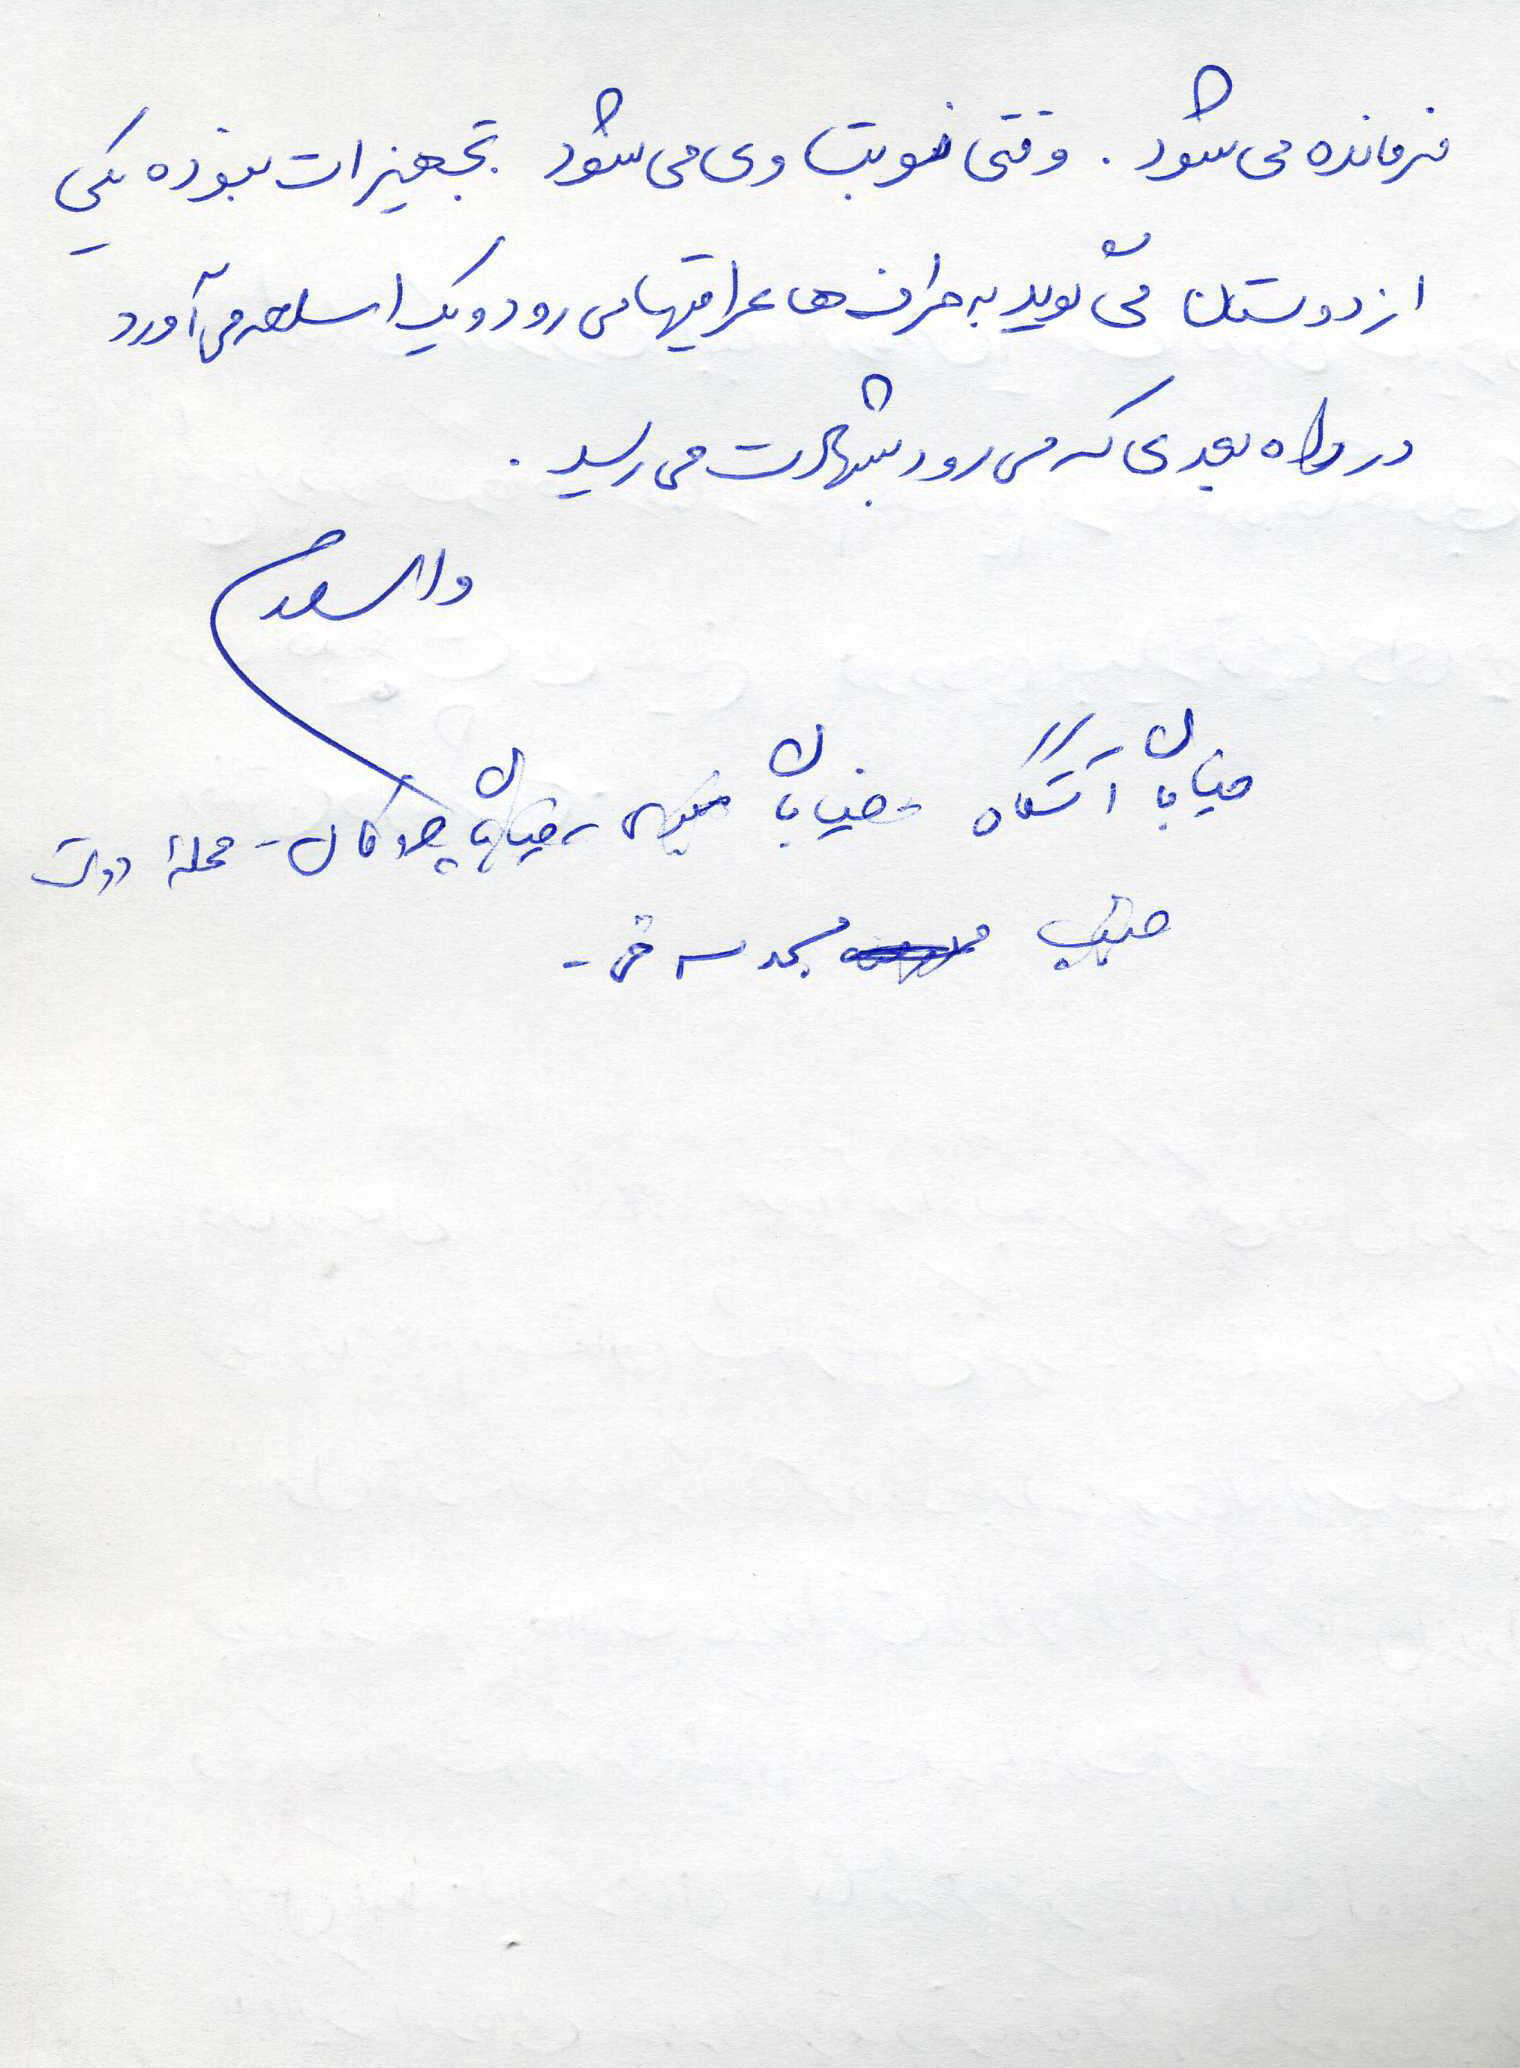 فرمانده می شود . وقتی نوبت وی می شود تجهیزات نبوده یکی
از دوستان می گوید به طرف ها عراقیها می رود و یک اسلحه می آورد
در راه بعدی که می رود بشهادت می رسد .
والسلام
خیابان آتشگاه - خیابان - خیابان - محله
جنب مسجد